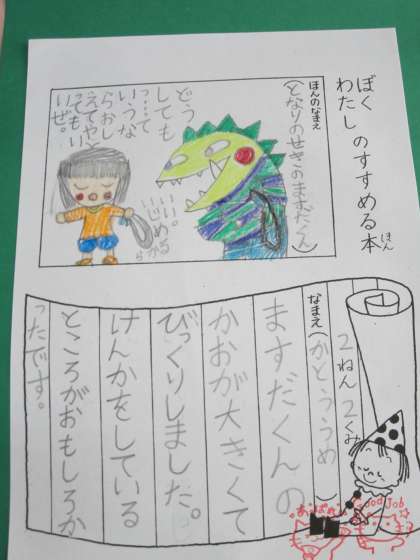 ぼく
わたし のすすめる本
ほん
ほんのなまえ
(となりのせきのますだくん)
どう
しても
っ…て
いうな
らおし
えてやっ
てもい
いぜ。
いい。
いじめる
から
2ねん2くみ
なまえ(かとううめ
ますだくんの
かおが大きくて
びっくりしました。
けんかをしている
ところがおもしろか
ったです。
Good Job